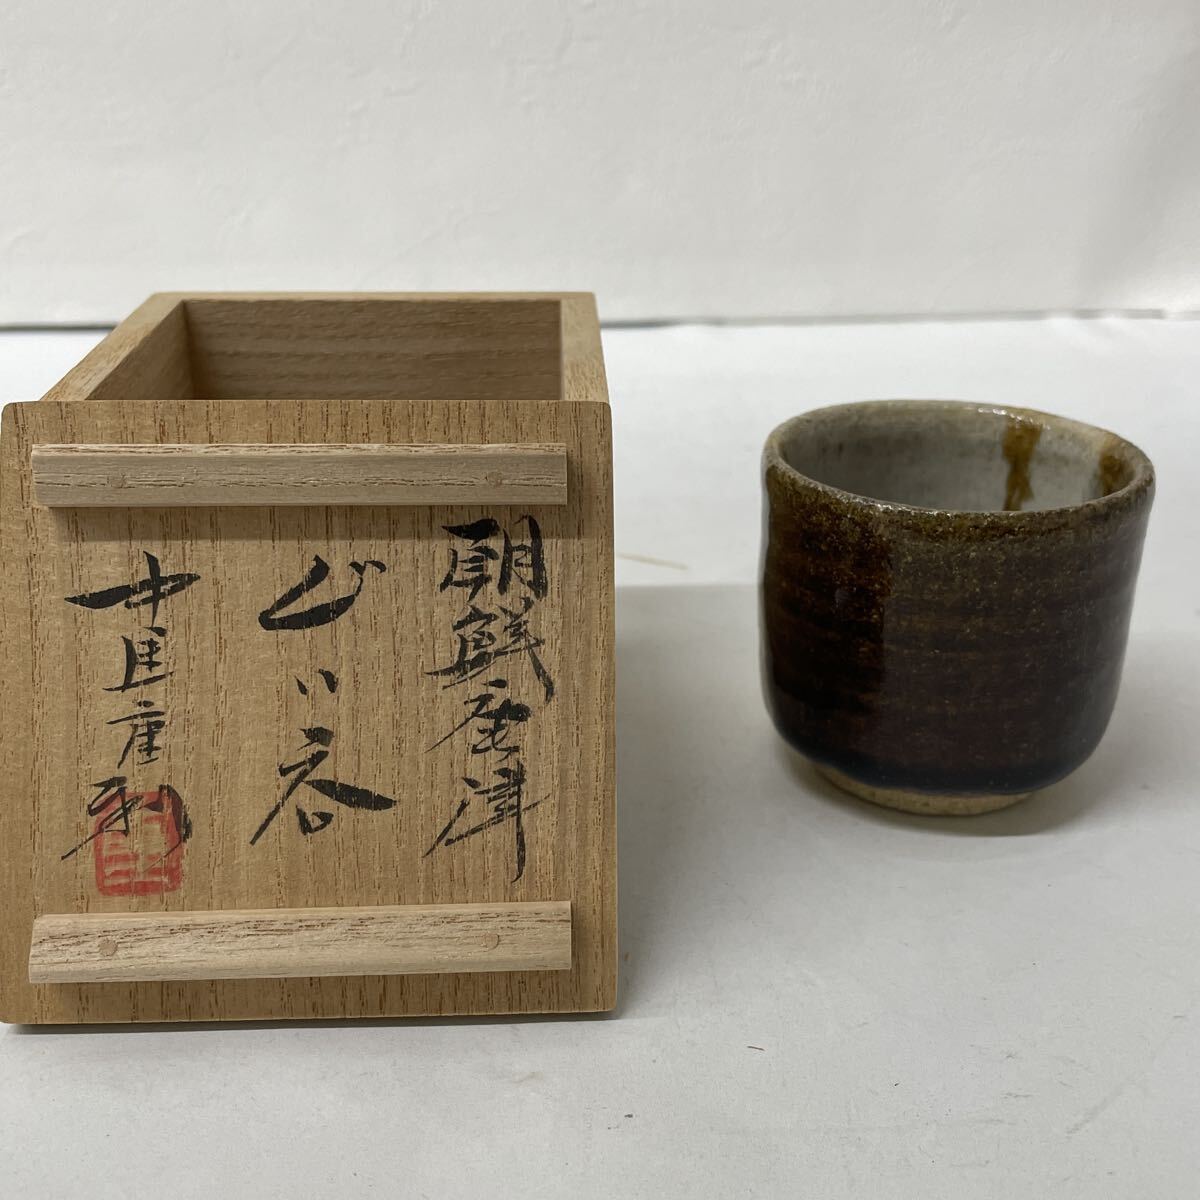 朝鮮唐津
ぐい呑
中里重利